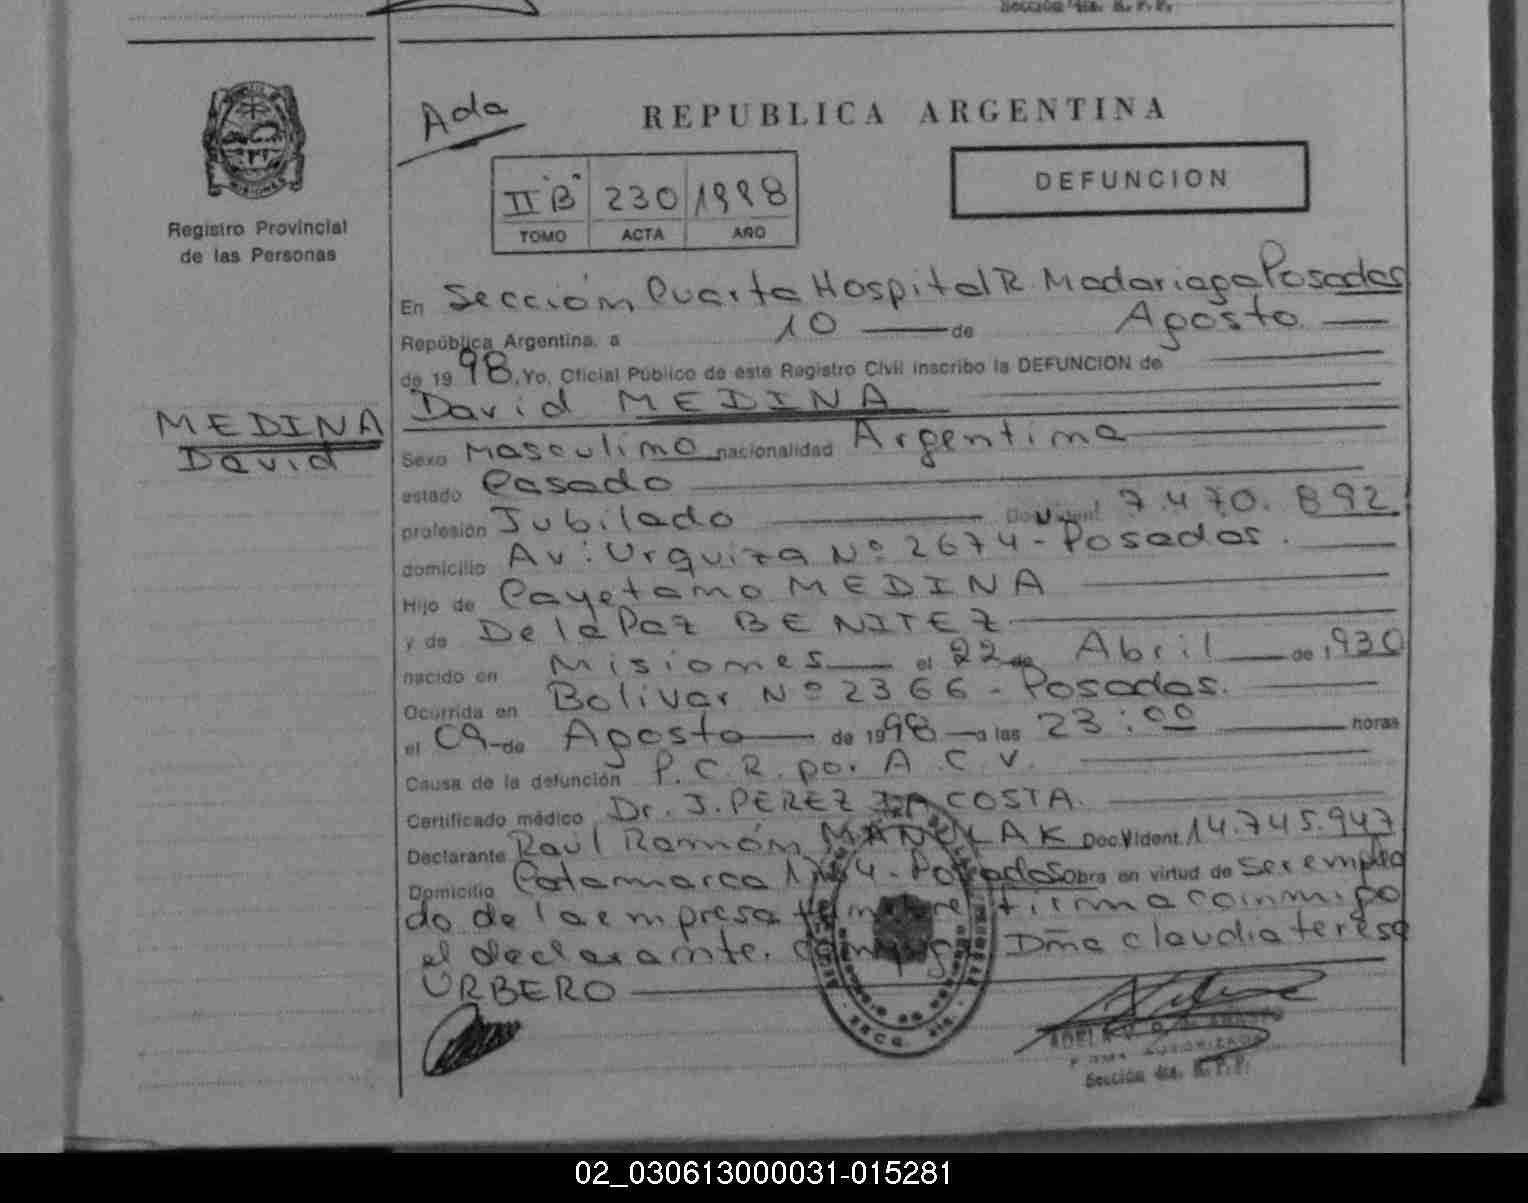 Sección 4ta. R.P.P.
Ada
REPUBLICA ARGENTINA
DEFUNCION
II "B" 230 1998
TOMO ACTA AÑO
Registro Provincial
de las Personas
En Sección Cuarta Hospital R. Madariaga Posadas
República Argentina, a 10 de Agosto
de 1998, Yo, Oficial Público de este Registro Civil inscribo la DEFUNCION de
David MEDINA
MEDINA
David
Sexo Masculino nacionalidad Argentina
estado Casado
profesión Jubilado Doc. Ident. 7.470.892
domicilio Av: Urquiza Nº 2674 - Posadas.
Hijo de Cayetano MEDINA
y de De la Paz BENITEZ
nacido en Misiones el 22 de Abril de 1930
Ocurrida en Bolivar Nº 2366 - Posadas.
el 09 de Agosto de 1998 a las 23:00 horas
Causa de la defunción P.C.R. por A.C.V.
Certificado médico Dr. J. PEREZ DA COSTA.
Declarante Raúl Ramón Doc. Ident. 14.745.947
Domicilio Catamarca - Posadas obra en virtud de ser emplea
do de la empresa firma conmigo
el declarante. Dña claudia teresa
URBERO
Sección 4ta. R.P.P.
02_030613000031-015281